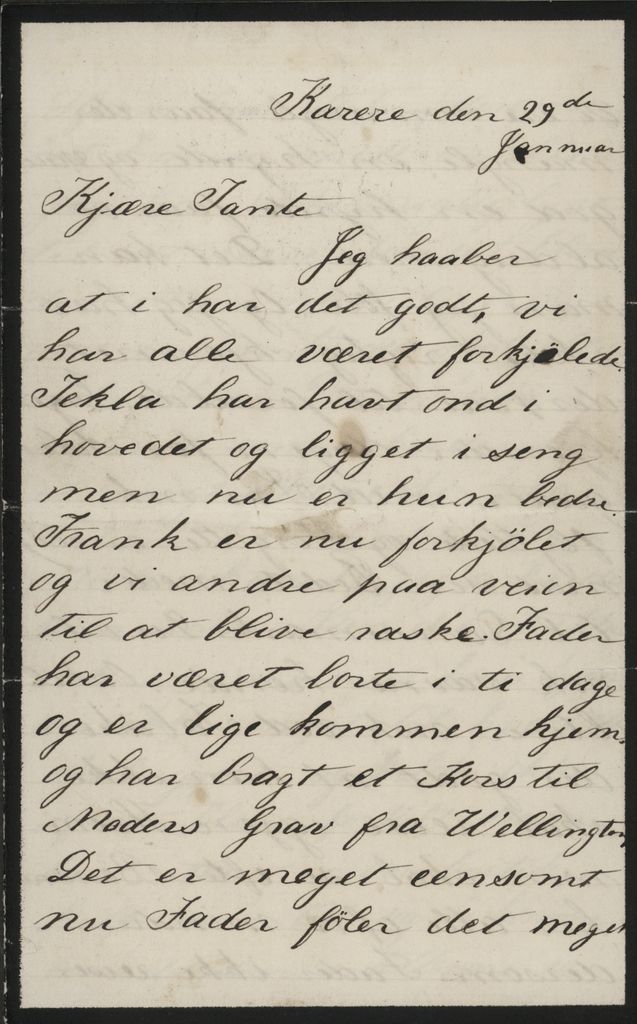 Karere den 29de
Januar
Kjære Tante
Jeg haaber
at i har det godt, vi
har alle været forkjölede.
Tekla har havt ond i
hovedet og ligget i seng
men nu er hun bedre.
Frank er nu forkjölet
og vi andre paa veien
til at blive raske. Fader
har været borte i ti dage
og er lige kommen hjem.
og har bragt et Kors til
Moders Grav fra Wellington
Det er meget eensomt
nu Fader föler det meget